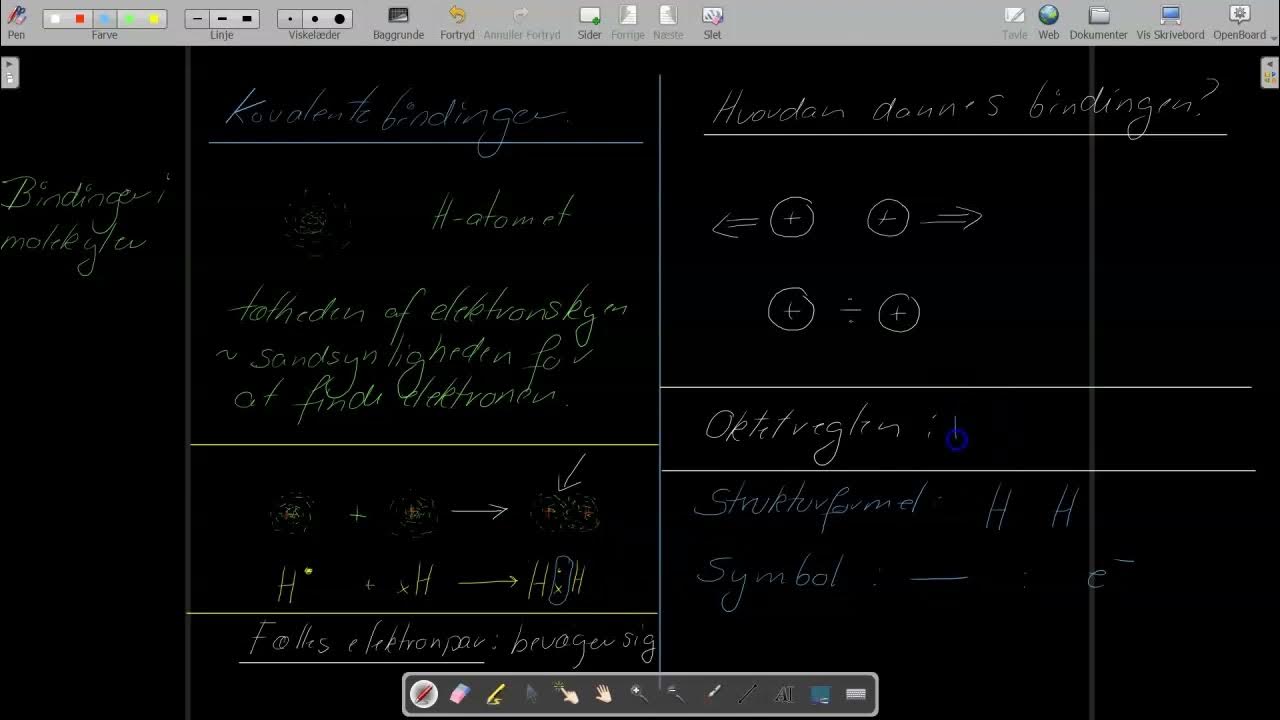 Pen
Farve
Linje
Viskelæder
Baggrunde
Fortryd
Annuller Fortryd
Sider
Forrige
Næste
Slet
Tavle
Web
Dokumenter
Vis Skrivebord
OpenBoard
Bindinger i
molekyler
Kovalente bindinger.
H-atomet
tætheden af elektronskyen
~ sandsynligheden for
at finde elektronen.
+ →
H• + xH → H:xH
Fælles elektronpar: bevæger sig
Hvordan dannes bindingen?
⇐ + + ⇒
+ ÷ +
Oktetreglen :
Strukturformel: H H
Symbol : — : e⁻
AI